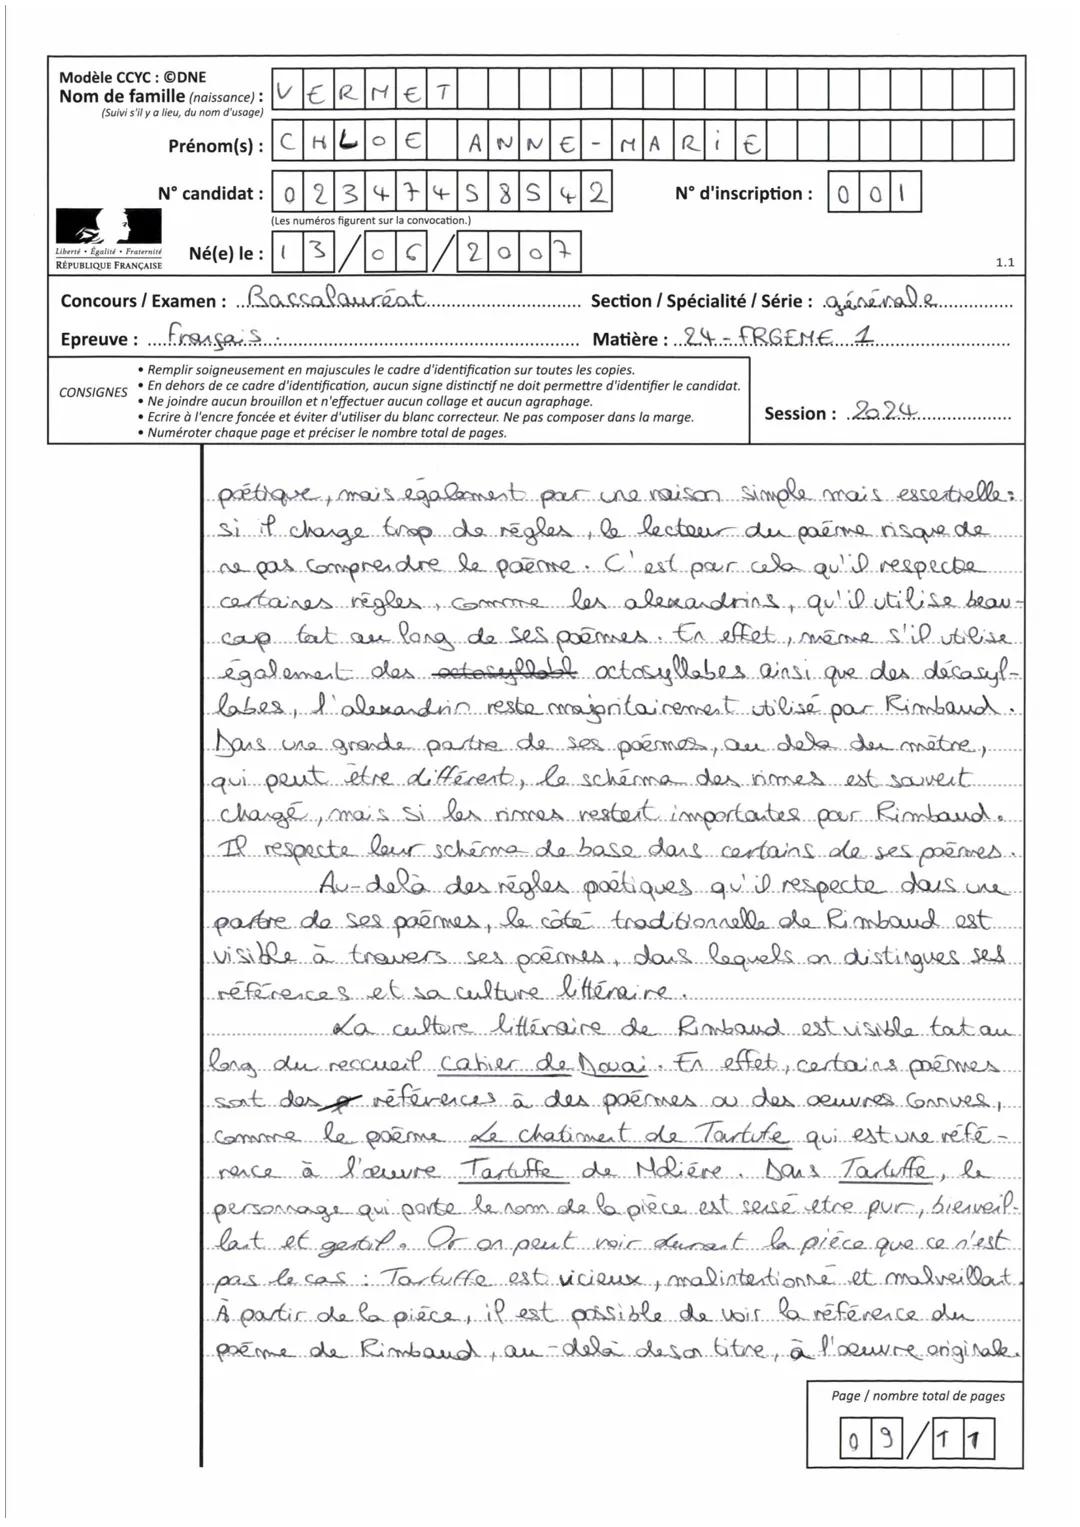 Modèle CCYC : ©DNE
Nom de famille (naissance) : VERMET
(Suivi s'il y a lieu, du nom d'usage)
Prénom(s) : CHLOE ANNE-MARiE
N° candidat : 02347458542 N° d'inscription : 001
(Les numéros figurent sur la convocation.)
Liberté • Égalité • Fraternité
RÉPUBLIQUE FRANÇAISE
Né(e) le : 13/06/2007
1.1
Concours / Examen : Baccalauréat Section / Spécialité / Série : générale
Epreuve : Français Matière : 24-FRGEME 1
CONSIGNES
• Remplir soigneusement en majuscules le cadre d'identification sur toutes les copies.
• En dehors de ce cadre d'identification, aucun signe distinctif ne doit permettre d'identifier le candidat.
• Ne joindre aucun brouillon et n'effectuer aucun collage et aucun agraphage.
• Ecrire à l'encre foncée et éviter d'utiliser du blanc correcteur. Ne pas composer dans la marge.
• Numéroter chaque page et préciser le nombre total de pages.
Session : 2024
poétique, mais également pour une raison simple mais essentielle :
si il change trop de règles, le lecteur du poème risque de
ne pas comprendre le poème. C'est pour cela qu'il respecte
certaines règles, comme les alexandrins, qu'il utilise beau-
coup tout au long de ses poèmes. En effet, même s'il utilise
également des octosyllabl octosyllabes ainsi que des décasyl-
labes, l'alexandrin reste majoritairement utilisé par Rimbaud.
Dans une grande partie de ses poèmes, au delà du mètre,
qui peut être différent, le schéma des rimes est souvent
changé, mais si les rimes restent importantes pour Rimbaud.
Il respecte leur schéma de base dans certains de ses poèmes.
Au-delà des règles poétiques qu'il respecte dans une
partie de ses poèmes, le côté traditionnelle de Rimbaud est
visible à travers ses poèmes, dans lequels on distingues ses
références et sa culture littéraire.
La culture littéraire de Rimbaud est visible tout au
long du reccueil Cahier de Douai. En effet, certains poèmes
sont des références à des poèmes ou des œuvres connues,
comme le poème Le chatiment de Tartufe qui est une réfé-
rence à l'œuvre Tartuffe de Molière. Dans Tartuffe, le
personnage qui porte le nom de la pièce est sensé etre pur, bienveil-
lant et gentil. Or on peut voir durant la pièce que ce n'est
pas le cas : Tartuffe est vicieux, malintentionné et malveillant.
À partir de la pièce, il est possible de voir la référence du
poème de Rimbaud, au-delà de son titre, à l'œuvre originale.
Page / nombre total de pages
09/11